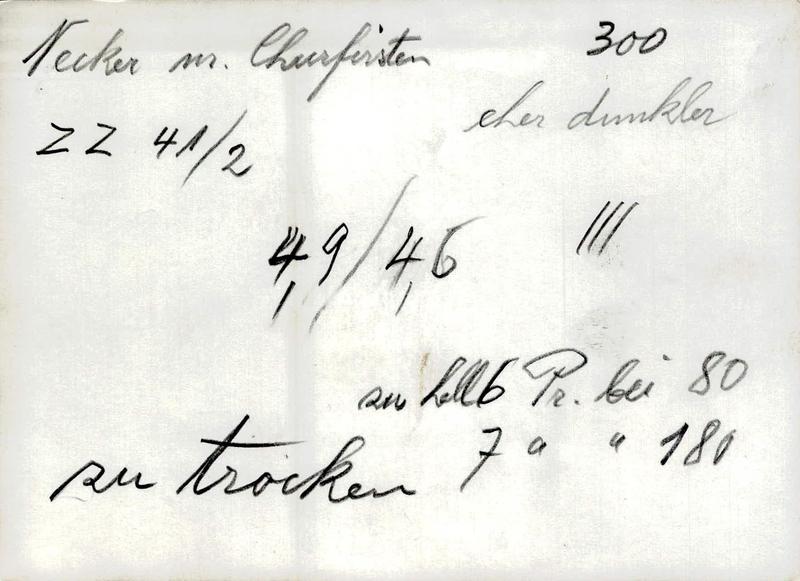 Necker m. Churfirsten 300
eher dunkler
ZZ 41/2
4,9/4,6 |||
zu hell 6 Pr. bei 80
7 " " 180
zu trocken